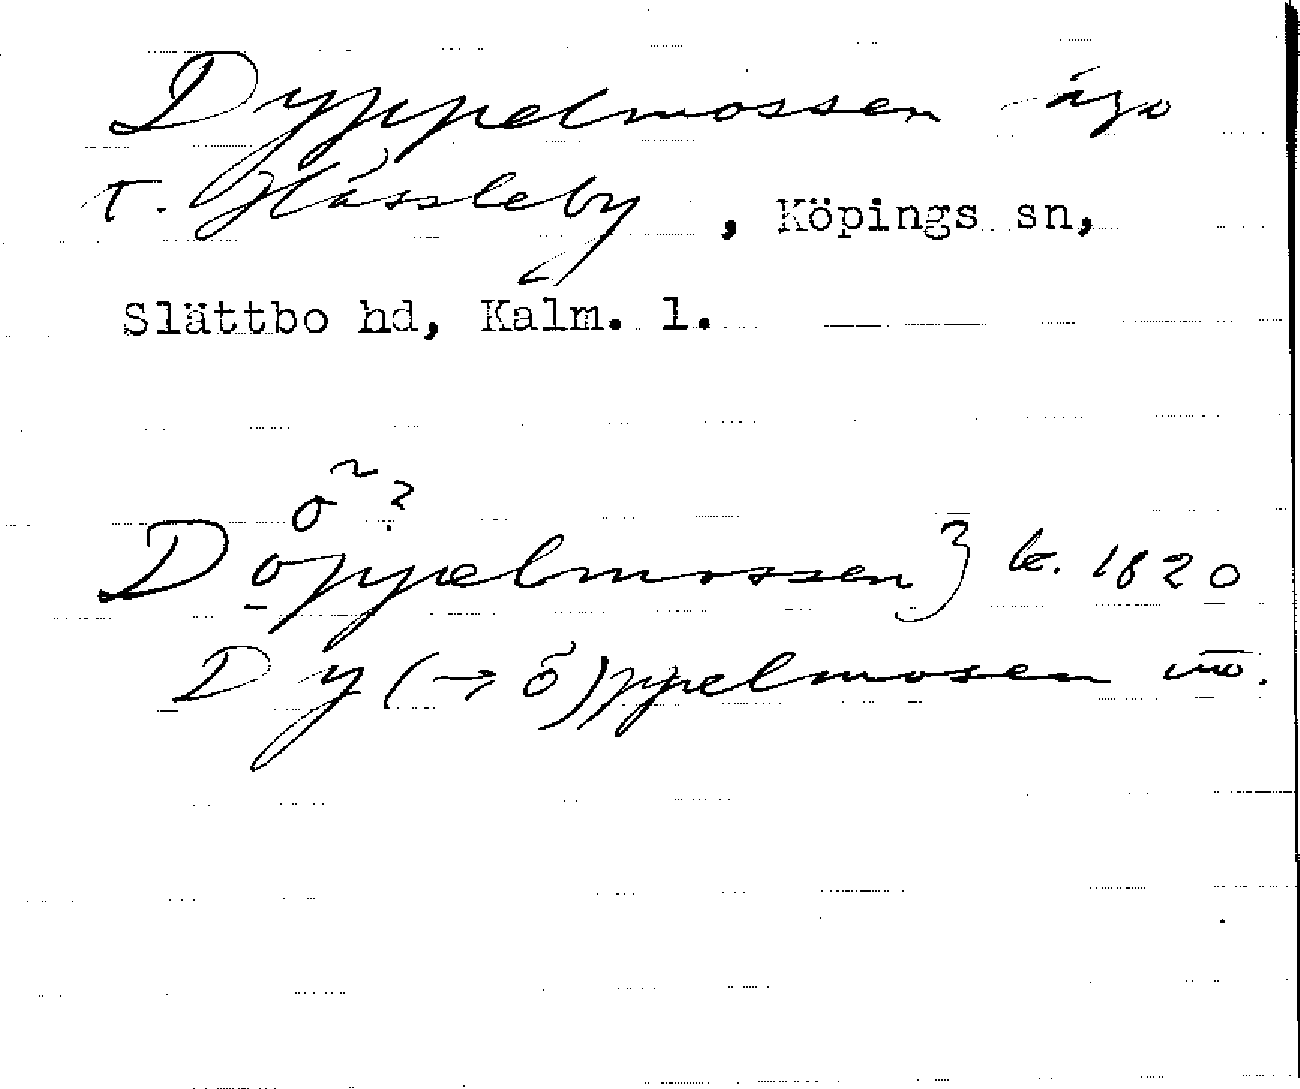 Dyppelmossen ägo
t. Hässleby, Köpings sn,
Slättbo hd, Kalm. l.
õ ?
Doppelmossen} lz. 1820
Dy(→ õ)ppelmosen